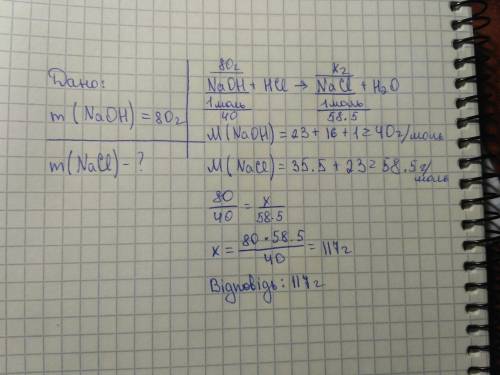 Дано:
m(NaOH) = 80г
m(NaCl) - ?
80г xг
NaOH + HCl → NaCl + H₂O
1моль 1моль
40 58.5
M(NaOH) = 23 + 16 + 1 = 40г/моль
M(NaCl) = 35.5 + 23 = 58.5г/моль
80/40 = x/58.5
x = 80·58.5/40 = 117г
Відповідь: 117г